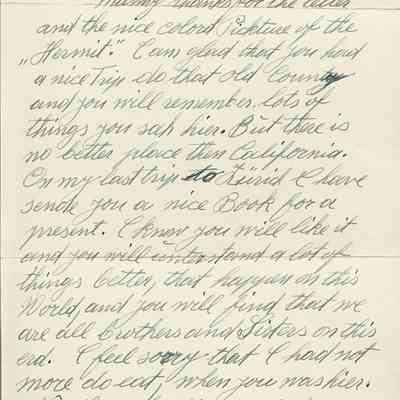 thanks for the letter
and the nice colord Pickture of the
„Hermit". I am glad that you had
a nice Trip do that old Country
and you will remember lots of
things you sah hier. But there is
no better place then California.
On my last trip to Zürich I have
sende you a nice Book for a
present. I know you will like it
and you will understand a lot of
things better, that happen on this
World, and you will find, that we
are all Brothers and Sisters on this
erd. I feel sorry that I had not
more do eat, when you was hier.